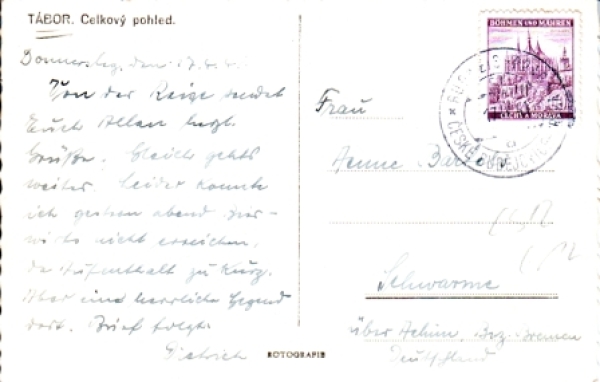 TÁBOR. Celkový pohled.
Donnerstag, den 17.4.41.
Von der Reise sendet
Euch Allen herzl.
Grüße. Gleich gehts
weiter. Leider konnte
ich gestern abend
nicht erreichen,
da Aufenthalt zu kurz.
Aber eine herrliche Gegend
dort. Brief folgt.
Dietrich
ROTOGRAFIE
BÖHMEN UND MÄHREN
ČECHY A MORAVA
ČESKÉ BUDĚJOVICE
Frau
Aenne
Schwarme
über Achim, Bez. Bremen
Deutschland